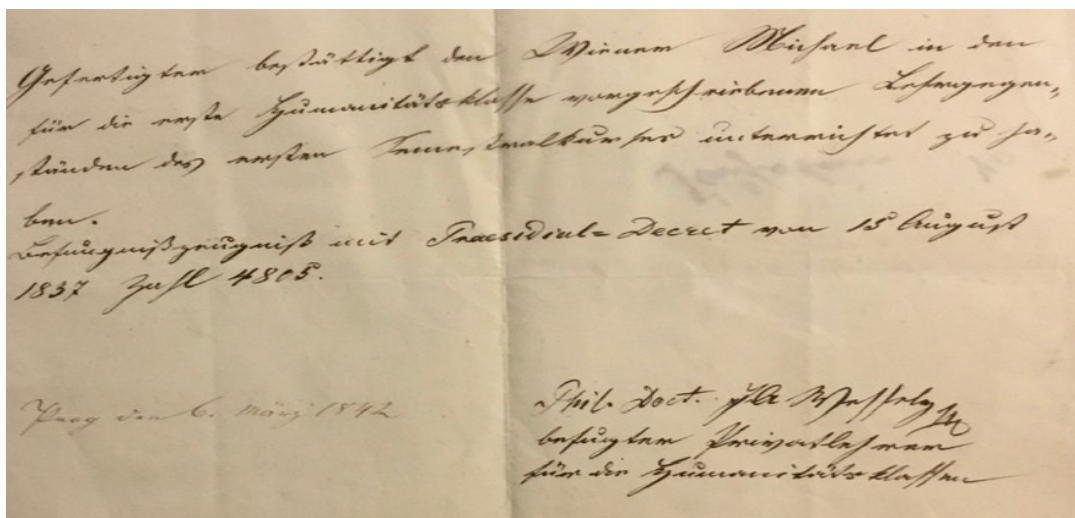 Gefertigter bestättigt den Wiener Michael in den
für die erste Humanitätsklasse vorgeschriebenen Lehrgegen-
ständen des ersten Semestralkurses unterrichtet zu ha-
ben.
Befugnißzeugniß mit Praesidial-Decret vom 15 August
1837 Zahl 4805.
Prag den 6. März 1842
Phil. Doct. Wessely
befugter Privatlehrer
für die Humanitätsklassen